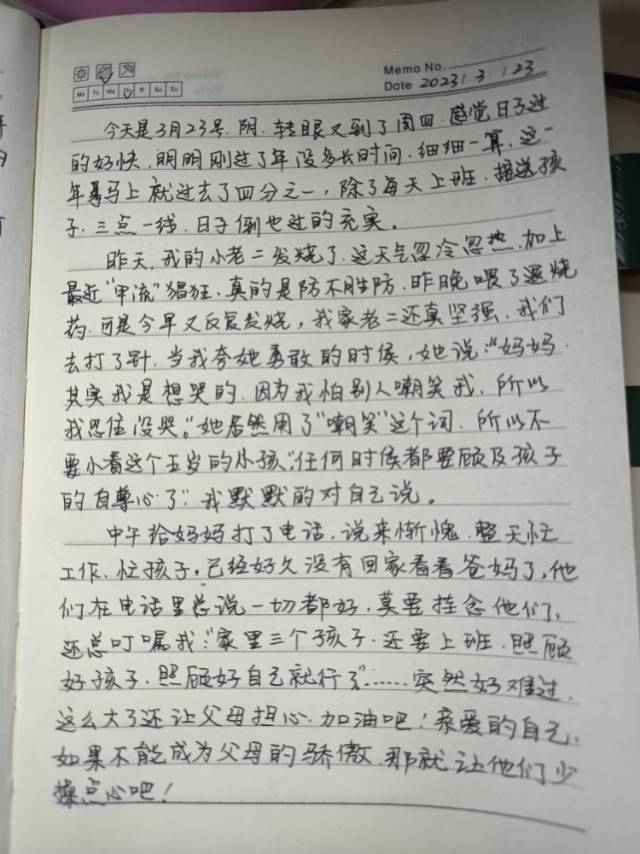 Memo No.
Mo Tu We Th Fr Sa Su
Date 2023 / 3 / 23
今天是3月23号.阴.转眼又到了周四.感觉日子过
的好快.明明刚过了年没多长时间.细细一算.这一
年马上就过去了四分之一，除了每天上班.接送孩
子.三点一线.日子倒也过的充实。
昨天.我的小老二发烧了.这天气忽冷忽热.加上
最近“甲流”猖狂.真的是防不胜防.昨晚喂了退烧
药.可是今早又反复发烧，我家老二还真坚强.我们
去打了针.当我夸她勇敢的时候，她说：“妈妈.
其实我是想哭的.因为我怕别人嘲笑我.所以
我忍住没哭。”她居然用了“嘲笑”这个词.所以不
要小看这个五岁的小孩，“任何时候都要顾及孩子
的自尊心了”.我默默的对自己说。
中午给妈妈打了电话，说来惭愧.整天忙
工作.忙孩子.已经好久没有回家看看爸妈了，他
们在电话里总说一切都好，莫要挂念他们，
还总叮嘱我：“家里三个孩子.还要上班.照顾
好孩子.照顾好自己就行了”……突然好难过.
这么大了还让父母担心.加油吧！亲爱的自己.
如果不能成为父母的骄傲.那就让他们少
操点心吧！